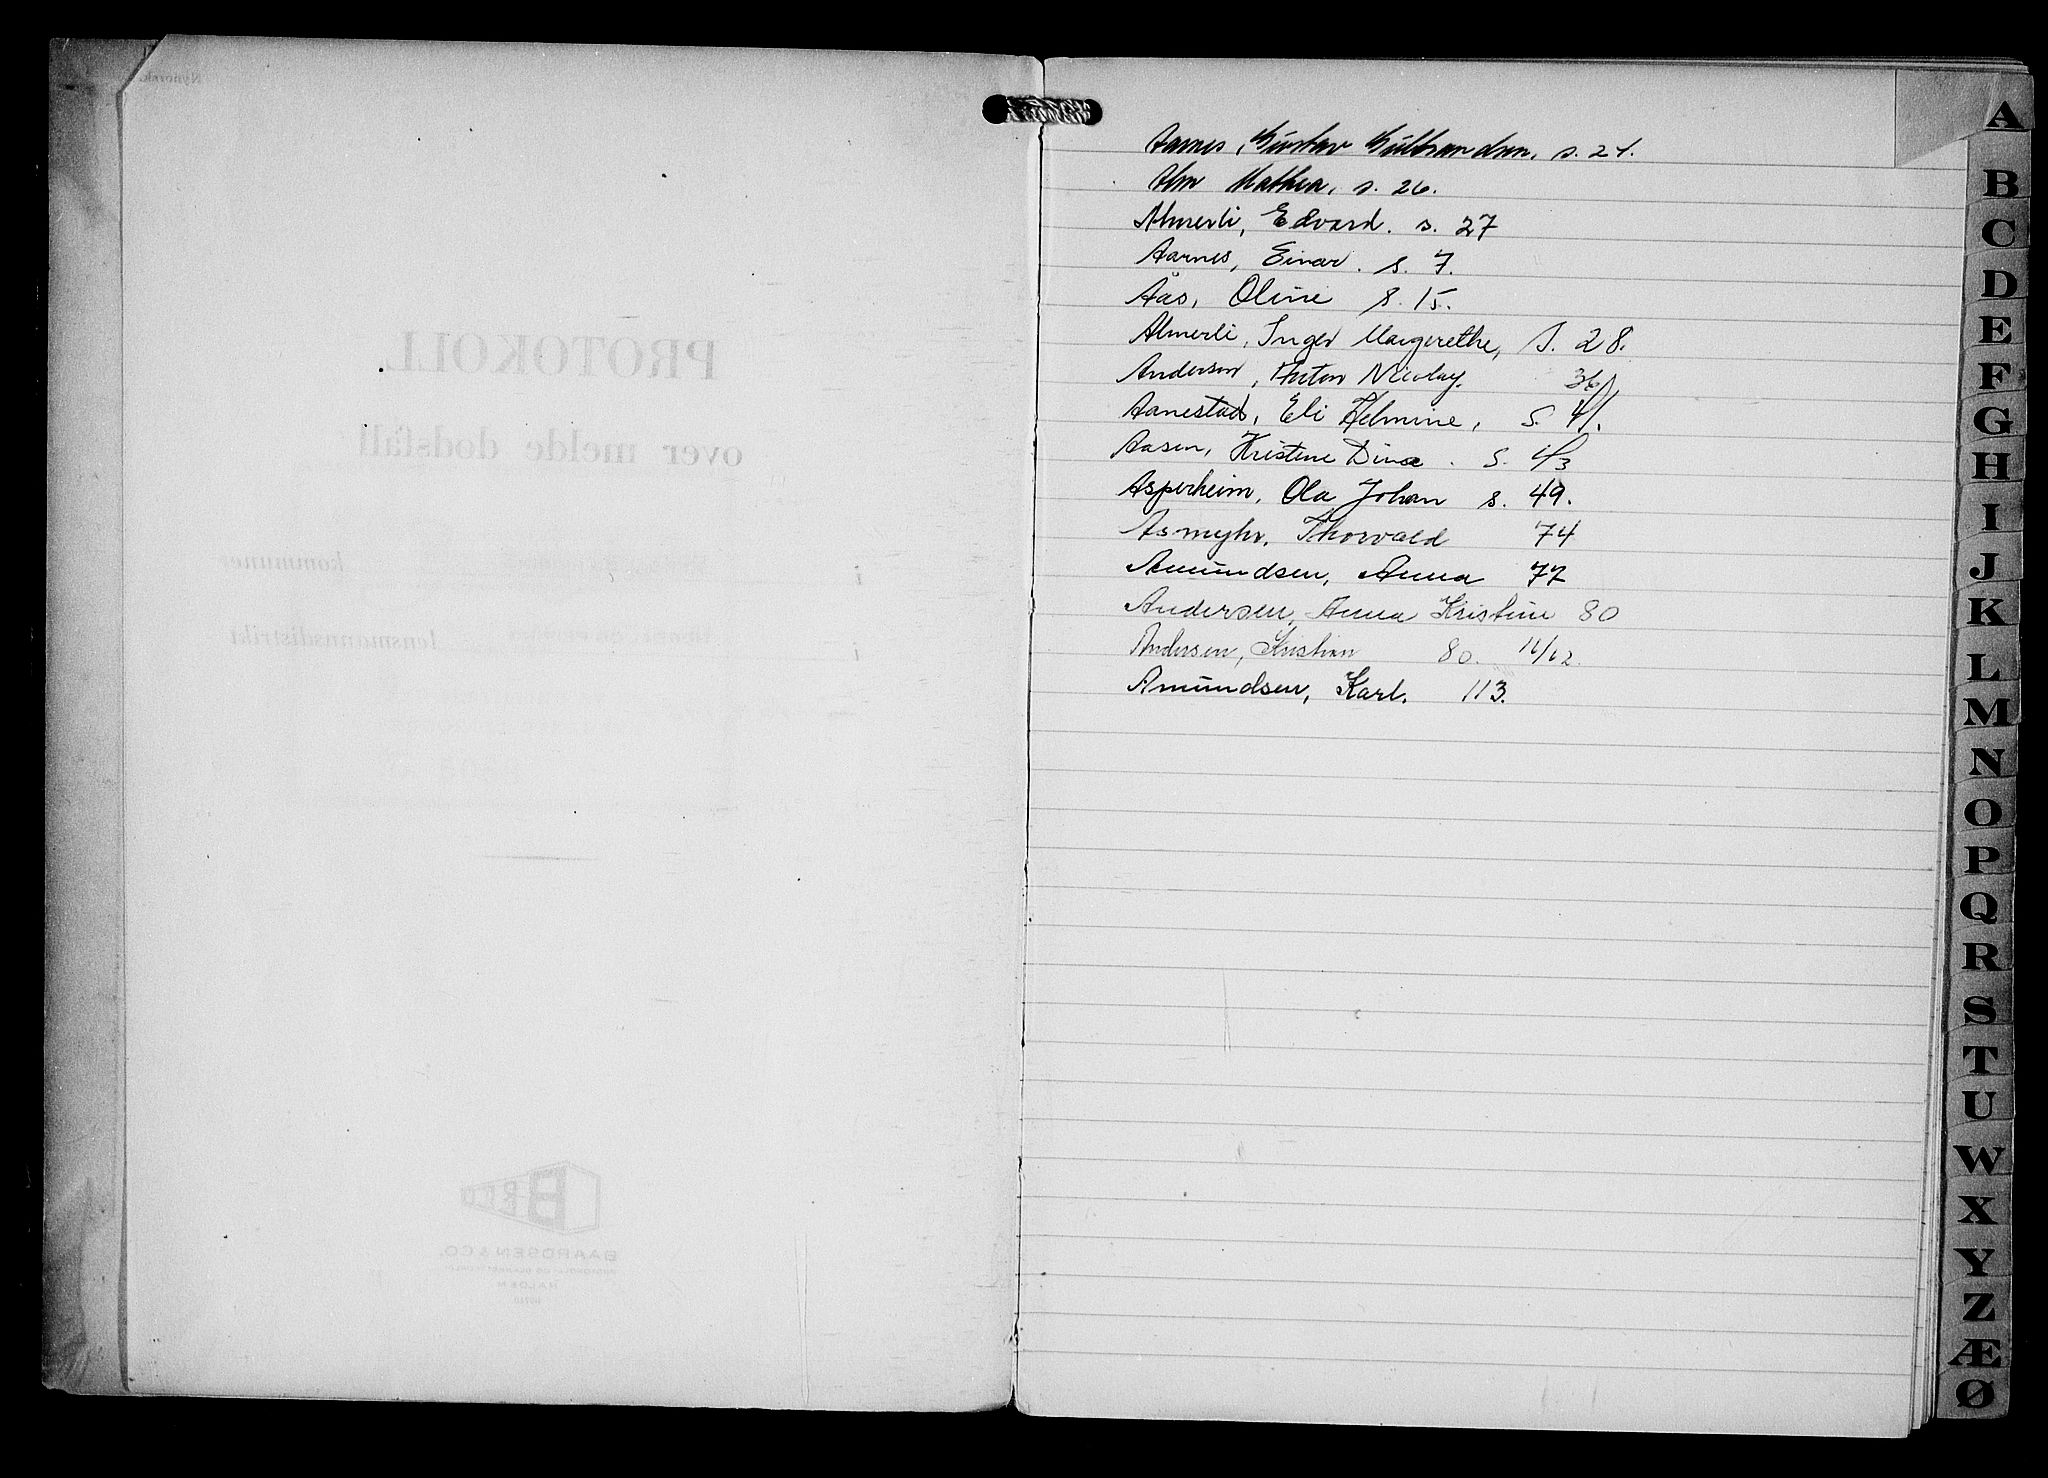 PROTOKOLL
over melde dødsfall
i kommuner
i lensmannsdistrikt
BAARDSEN & CO.
HALDEN
Aarnes, Gustav Gulbrandsen, s. 21.
Alm Mathea, s. 26.
Almerli, Edvard. s. 27
Aarnes, Einar. s. 7.
Ås, Oline s. 15.
Almerli, Inger Margrethe, S. 28.
Andersen, Anton Nicolay. 36
Aanestad, Eli Helmine, S. 41.
Aasen, Kristine Dina. S. 43
Asperheim, Ola Johan s. 49.
Asmyhr, Thorvald 74
Amundsen, Anna 77
Andersen, Anna Kristine 80
Andersen, Kristian 80. 11/12.
Amundsen, Karl. 113.
A
B
C
D
E
F
G
H
I
J
K
L
M
N
O
P
Q
R
S
T
U
W
X
Y
Z
Æ
Ø